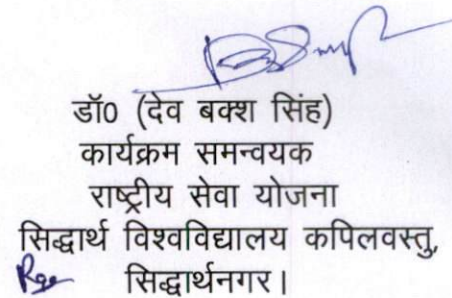 डॉ0 (देव बक्श सिंह)
कार्यक्रम समन्वयक
राष्ट्रीय सेवा योजना
सिद्धार्थ विश्वविद्यालय कपिलवस्तु,
सिद्धार्थनगर।